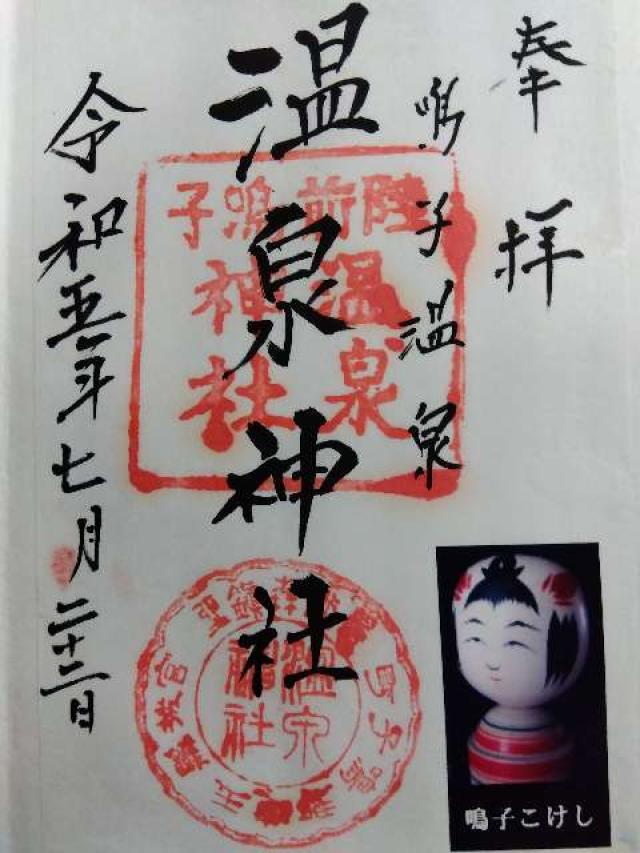 奉拝
鳴子温泉
温泉神社
令和五年七月二十二日
陸前
鳴子
温泉
神社
温泉
神社
鳴子こけし